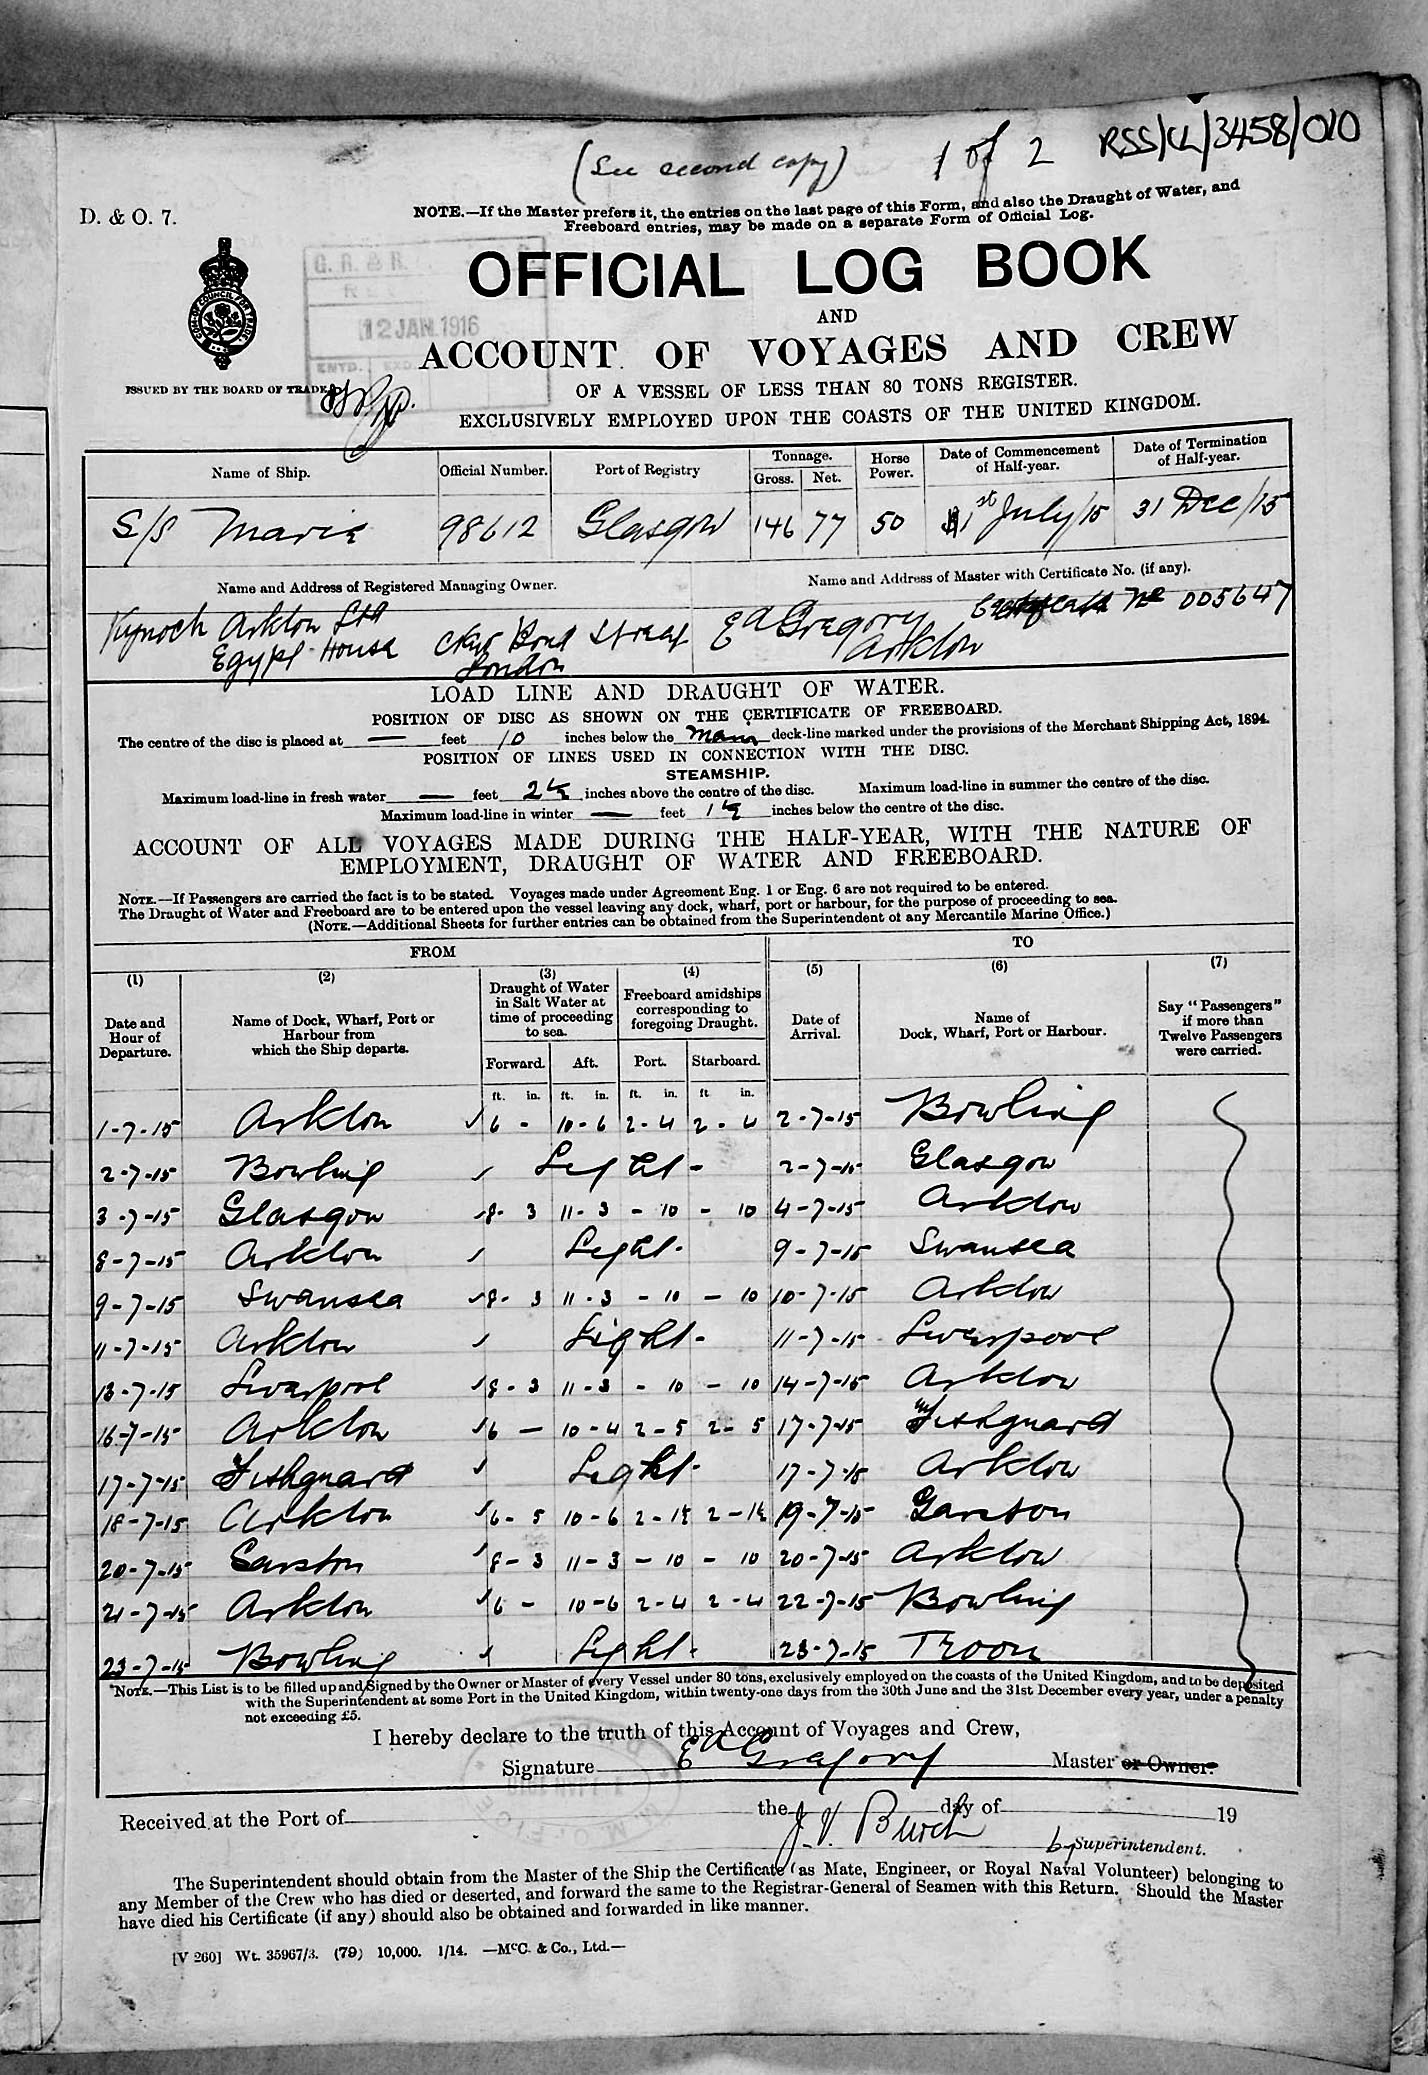 (See second copy) 1 of 2 RSS/CL/3458/010
D. & O. 7.
NOTE.—If the Master prefers it, the entries on the last page of this Form, and also the Draught of Water, and
Freeboard entries, may be made on a separate Form of Official Log.
OFFICIAL LOG BOOK
AND
ACCOUNT OF VOYAGES AND CREW
OF A VESSEL OF LESS THAN 80 TONS REGISTER.
EXCLUSIVELY EMPLOYED UPON THE COASTS OF THE UNITED KINGDOM.
ISSUED BY THE BOARD OF TRADE
12 JAN. 1916
Name of Ship. Official Number. Port of Registry Tonnage. Gross. Net. Horse Power. Date of Commencement of Half-year. Date of Termination of Half-year.
S/S Maria 98612 Glasgow 146 77 50 1st July/15 31 Dec/15
Name and Address of Registered Managing Owner. Name and Address of Master with Certificate No. (if any).
Kynoch Arklow Ltd E A Gregory Certificate No 005647
Egypt House New Bond Street Arklow
London
LOAD LINE AND DRAUGHT OF WATER.
POSITION OF DISC AS SHOWN ON THE CERTIFICATE OF FREEBOARD.
The centre of the disc is placed at — feet 10 inches below the Main deck-line marked under the provisions of the Merchant Shipping Act, 1894.
POSITION OF LINES USED IN CONNECTION WITH THE DISC.
STEAMSHIP.
Maximum load-line in fresh water — feet 2½ inches above the centre of the disc. Maximum load-line in summer the centre of the disc.
Maximum load-line in winter — feet 1½ inches below the centre of the disc.
ACCOUNT OF ALL VOYAGES MADE DURING THE HALF-YEAR, WITH THE NATURE OF
EMPLOYMENT, DRAUGHT OF WATER AND FREEBOARD.
NOTE.—If Passengers are carried the fact is to be stated. Voyages made under Agreement Eng. 1 or Eng. 6 are not required to be entered.
The Draught of Water and Freeboard are to be entered upon the vessel leaving any dock, wharf, port or harbour, for the purpose of proceeding to sea.
(NOTE.—Additional Sheets for further entries can be obtained from the Superintendent of any Mercantile Marine Office.)
FROM TO
(1) (2) (3) (4) (5) (6) (7)
Date and Hour of Departure. Name of Dock, Wharf, Port or Harbour from which the Ship departs. Draught of Water in Salt Water at time of proceeding to sea. Freeboard amidships corresponding to foregoing Draught. Date of Arrival. Name of Dock, Wharf, Port or Harbour. Say "Passengers" if more than Twelve Passengers were carried.
Forward. Aft. Port. Starboard.
ft. in. ft. in. ft. in. ft in.
1-7-15 Arklow 6 - 10-6 2-4 2-4 2-7-15 Bowling
2-7-15 Bowling Light - 2-7-15 Glasgow
3-7-15 Glasgow 8-3 11-3 -10 -10 4-7-15 Arklow
8-7-15 Arklow Light - 9-7-15 Swansea
9-7-15 Swansea 8-3 11-3 -10 -10 10-7-15 Arklow
11-7-15 Arklow Light - 11-7-15 Liverpool
13-7-15 Liverpool 8-3 11-3 -10 -10 14-7-15 Arklow
16-7-15 Arklow 6 - 10-4 2-5 2-5 17-7-15 Fishguard
17-7-15 Fishguard Light - 17-7-15 Arklow
18-7-15 Arklow 6-5 10-6 2-1½ 2-1½ 19-7-15 Garston
20-7-15 Garston 8-3 11-3 -10 -10 20-7-15 Arklow
21-7-15 Arklow 6 - 10-6 2-4 2-4 22-7-15 Bowling
23-7-15 Bowling Light - 23-7-15 Troon
*NOTE.—This List is to be filled up and Signed by the Owner or Master of every Vessel under 80 tons, exclusively employed on the coasts of the United Kingdom, and to be deposited
with the Superintendent at some Port in the United Kingdom, within twenty-one days from the 30th June and the 31st December every year, under a penalty
not exceeding £5.
I hereby declare to the truth of this Account of Voyages and Crew,
Signature E A Gregory Master or Owner.
Received at the Port of the day of 19
J. V. Burch by Superintendent.
The Superintendent should obtain from the Master of the Ship the Certificate (as Mate, Engineer, or Royal Naval Volunteer) belonging to
any Member of the Crew who has died or deserted, and forward the same to the Registrar-General of Seamen with this Return. Should the Master
have died his Certificate (if any) should also be obtained and forwarded in like manner.
[V 260] Wt. 35967/3. (79) 10,000. 1/14. —McC. & Co., Ltd.—